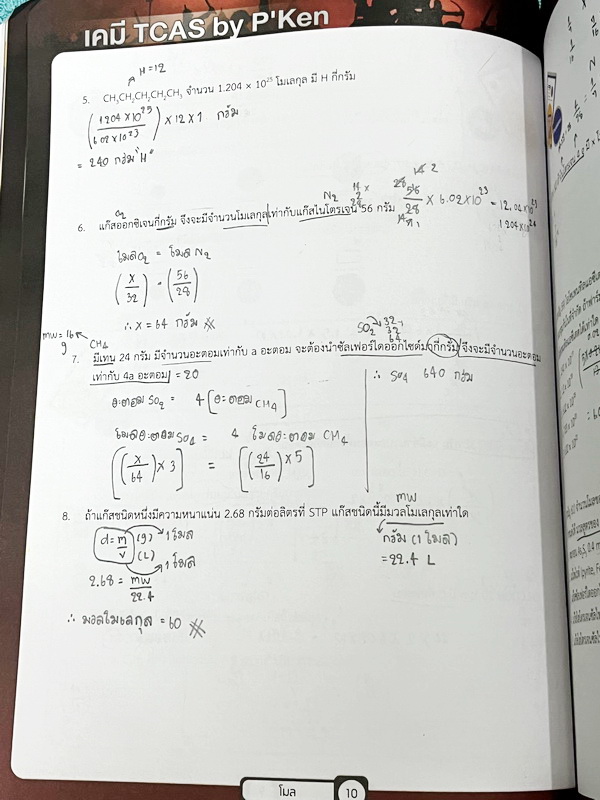 เคมี TCAS by P'Ken
H = 12
5. CH₃CH₂CH₂CH₂CH₃ จำนวน 1.204 × 10²⁵ โมเลกุล มี H กี่กรัม
(1.204 × 10²⁵ / 6.02 × 10²³) × 12 × 1 กรัม
= 240 กรัม "H"
N₂
56/28 × 6.02 × 10²³ = 12.04 × 10²³
1.204 × 10²⁴
O₂
6. แก๊สออกซิเจนกี่กรัม จึงจะมีจำนวนโมเลกุลเท่ากับแก๊สไนโตรเจน 56 กรัม
โมล O₂ = โมล N₂
(x/32) = (56/28)
∴ x = 64 กรัม
mw = 16
g
CH₄
SO₂
32
32
64
7. มีเทน 24 กรัม มีจำนวนอะตอมเท่ากับ a อะตอม จะต้องนำซัลเฟอร์ไดออกไซด์มากี่กรัม จึงจะมีจำนวนอะตอม
เท่ากับ 4a อะตอม = 20
∴ SO₄ 640 กรัม
อะตอม SO₂ = 4 [อะตอม CH₄]
โมลอะตอม SO₄ = 4 โมลอะตอม CH₄
[(x/64) × 3] = [(24/16) × 5]
8. ถ้าแก๊สชนิดหนึ่งมีความหนาแน่น 2.68 กรัมต่อลิตรที่ STP แก๊สชนิดนี้มีมวลโมเลกุลเท่าใด
mw
d = m/v (g) 1 โมล
(L) 1 โมล
กรัม (1 โมล)
= 22.4 L
2.68 = mw/22.4
∴ มวลโมเลกุล = 60
โมล 10